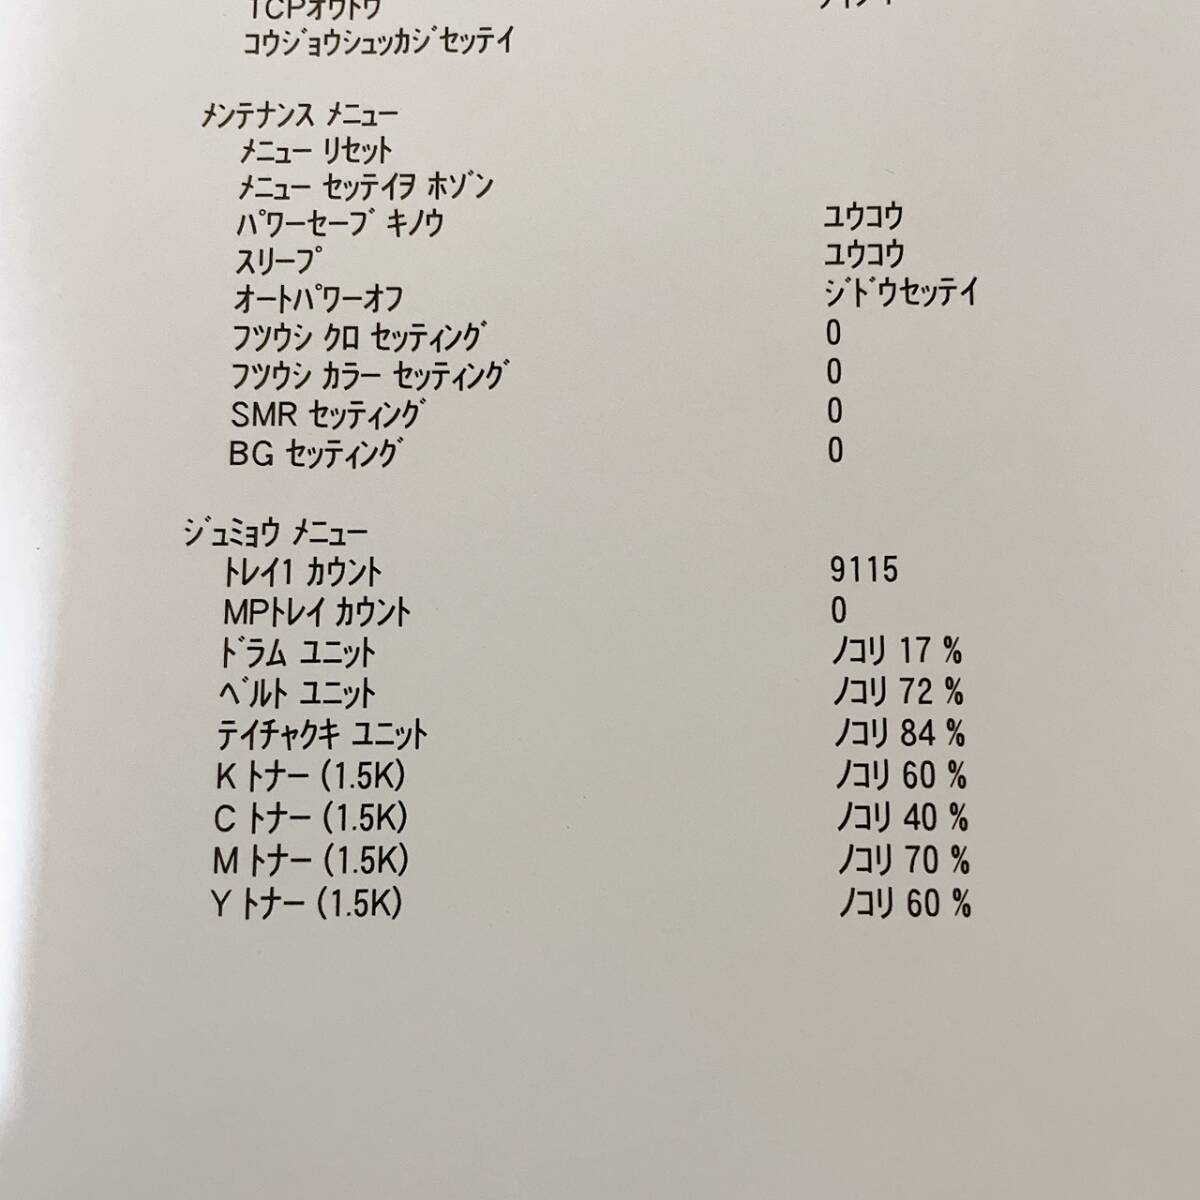 TCPオウトウ
コウジョウシュッカジセッテイ
メンテナンス メニュー
メニュー リセット
メニュー セッテイヲ ホゾン
パワーセーブ キノウ ユウコウ
スリープ ユウコウ
オートパワーオフ ジドウセッテイ
フツウシ クロ セッティング 0
フツウシ カラー セッティング 0
SMR セッティング 0
BG セッティング 0
ジュミョウ メニュー
トレイ1 カウント 9115
MPトレイ カウント 0
ドラム ユニット ノコリ 17 %
ベルト ユニット ノコリ 72 %
テイチャクキ ユニット ノコリ 84 %
K トナー (1.5K) ノコリ 60 %
C トナー (1.5K) ノコリ 40 %
M トナー (1.5K) ノコリ 70 %
Y トナー (1.5K) ノコリ 60 %